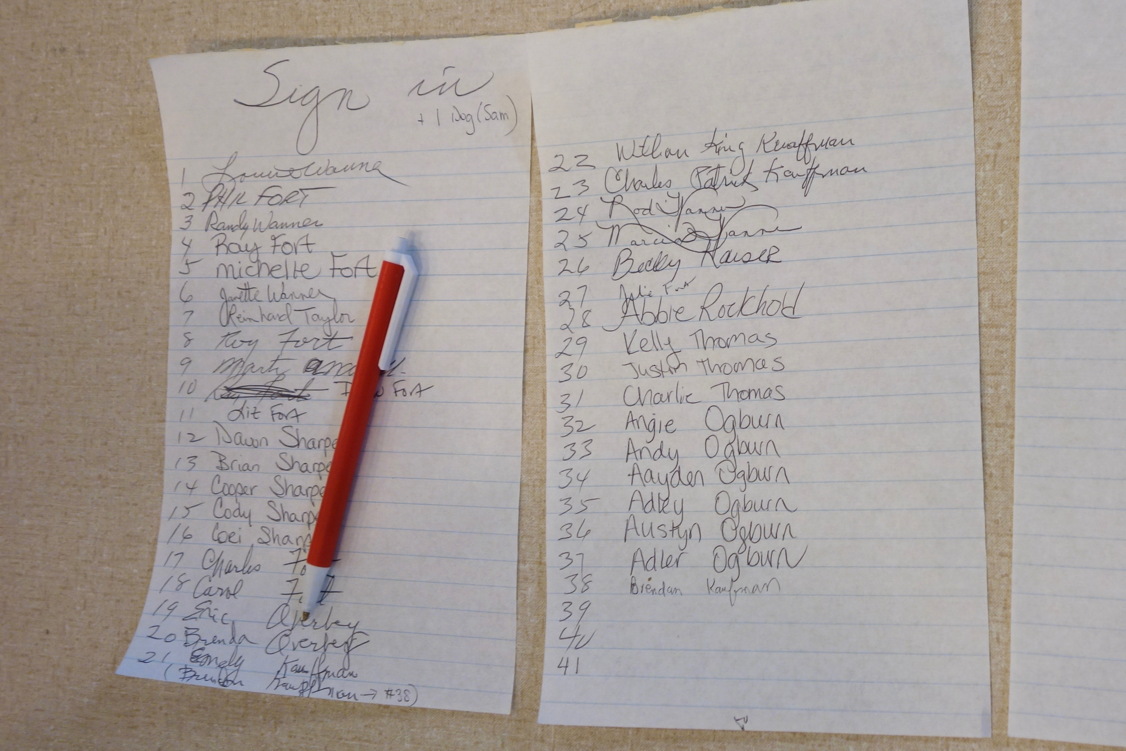 Sign in
+ 1 Dog (Sam)
1 Wanner
2 PHIL FORT
3 Randy Wanner
4 Ray Fort
5 michelle Fort
6 Wanner
7 Reinhard Taylor
8 Fort
9 Marty
10 Fort
11 Liz Fort
12 Dawn Sharpe
13 Brian Sharpe
14 Cooper Sharpe
15 Cody Sharp
16 Coei Sharp
17 Charles
18 Carol
19 Eric Overbey
20 Brenda Overbey
21 Emely Kauffman
( Kauffman → #38)
22 King Kauffman
23 Charles Patrick Kauffman
24 Rod Wanner
25 Marcia Wanner
26 Becky Kaiser
27 Julie Fort
28 Abbie Rockhold
29 Kelly Thomas
30 Justin Thomas
31 Charlie Thomas
32 Angie Ogburn
33 Andy Ogburn
34 Aayden Ogburn
35 Adley Ogburn
36 Austyn Ogburn
37 Adler Ogburn
38 Brendan Kauffman
39
40
41